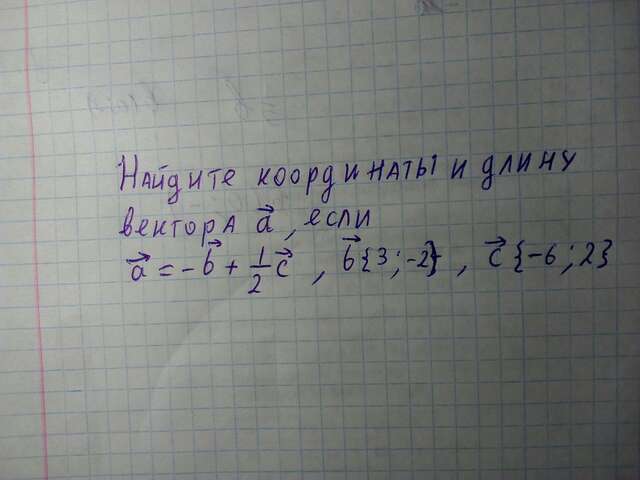 Найдите координаты и длину
вектора a⃗, если
a⃗ = -b⃗ + 1/2 c⃗ , b⃗{3;-2} , c⃗{-6;2}